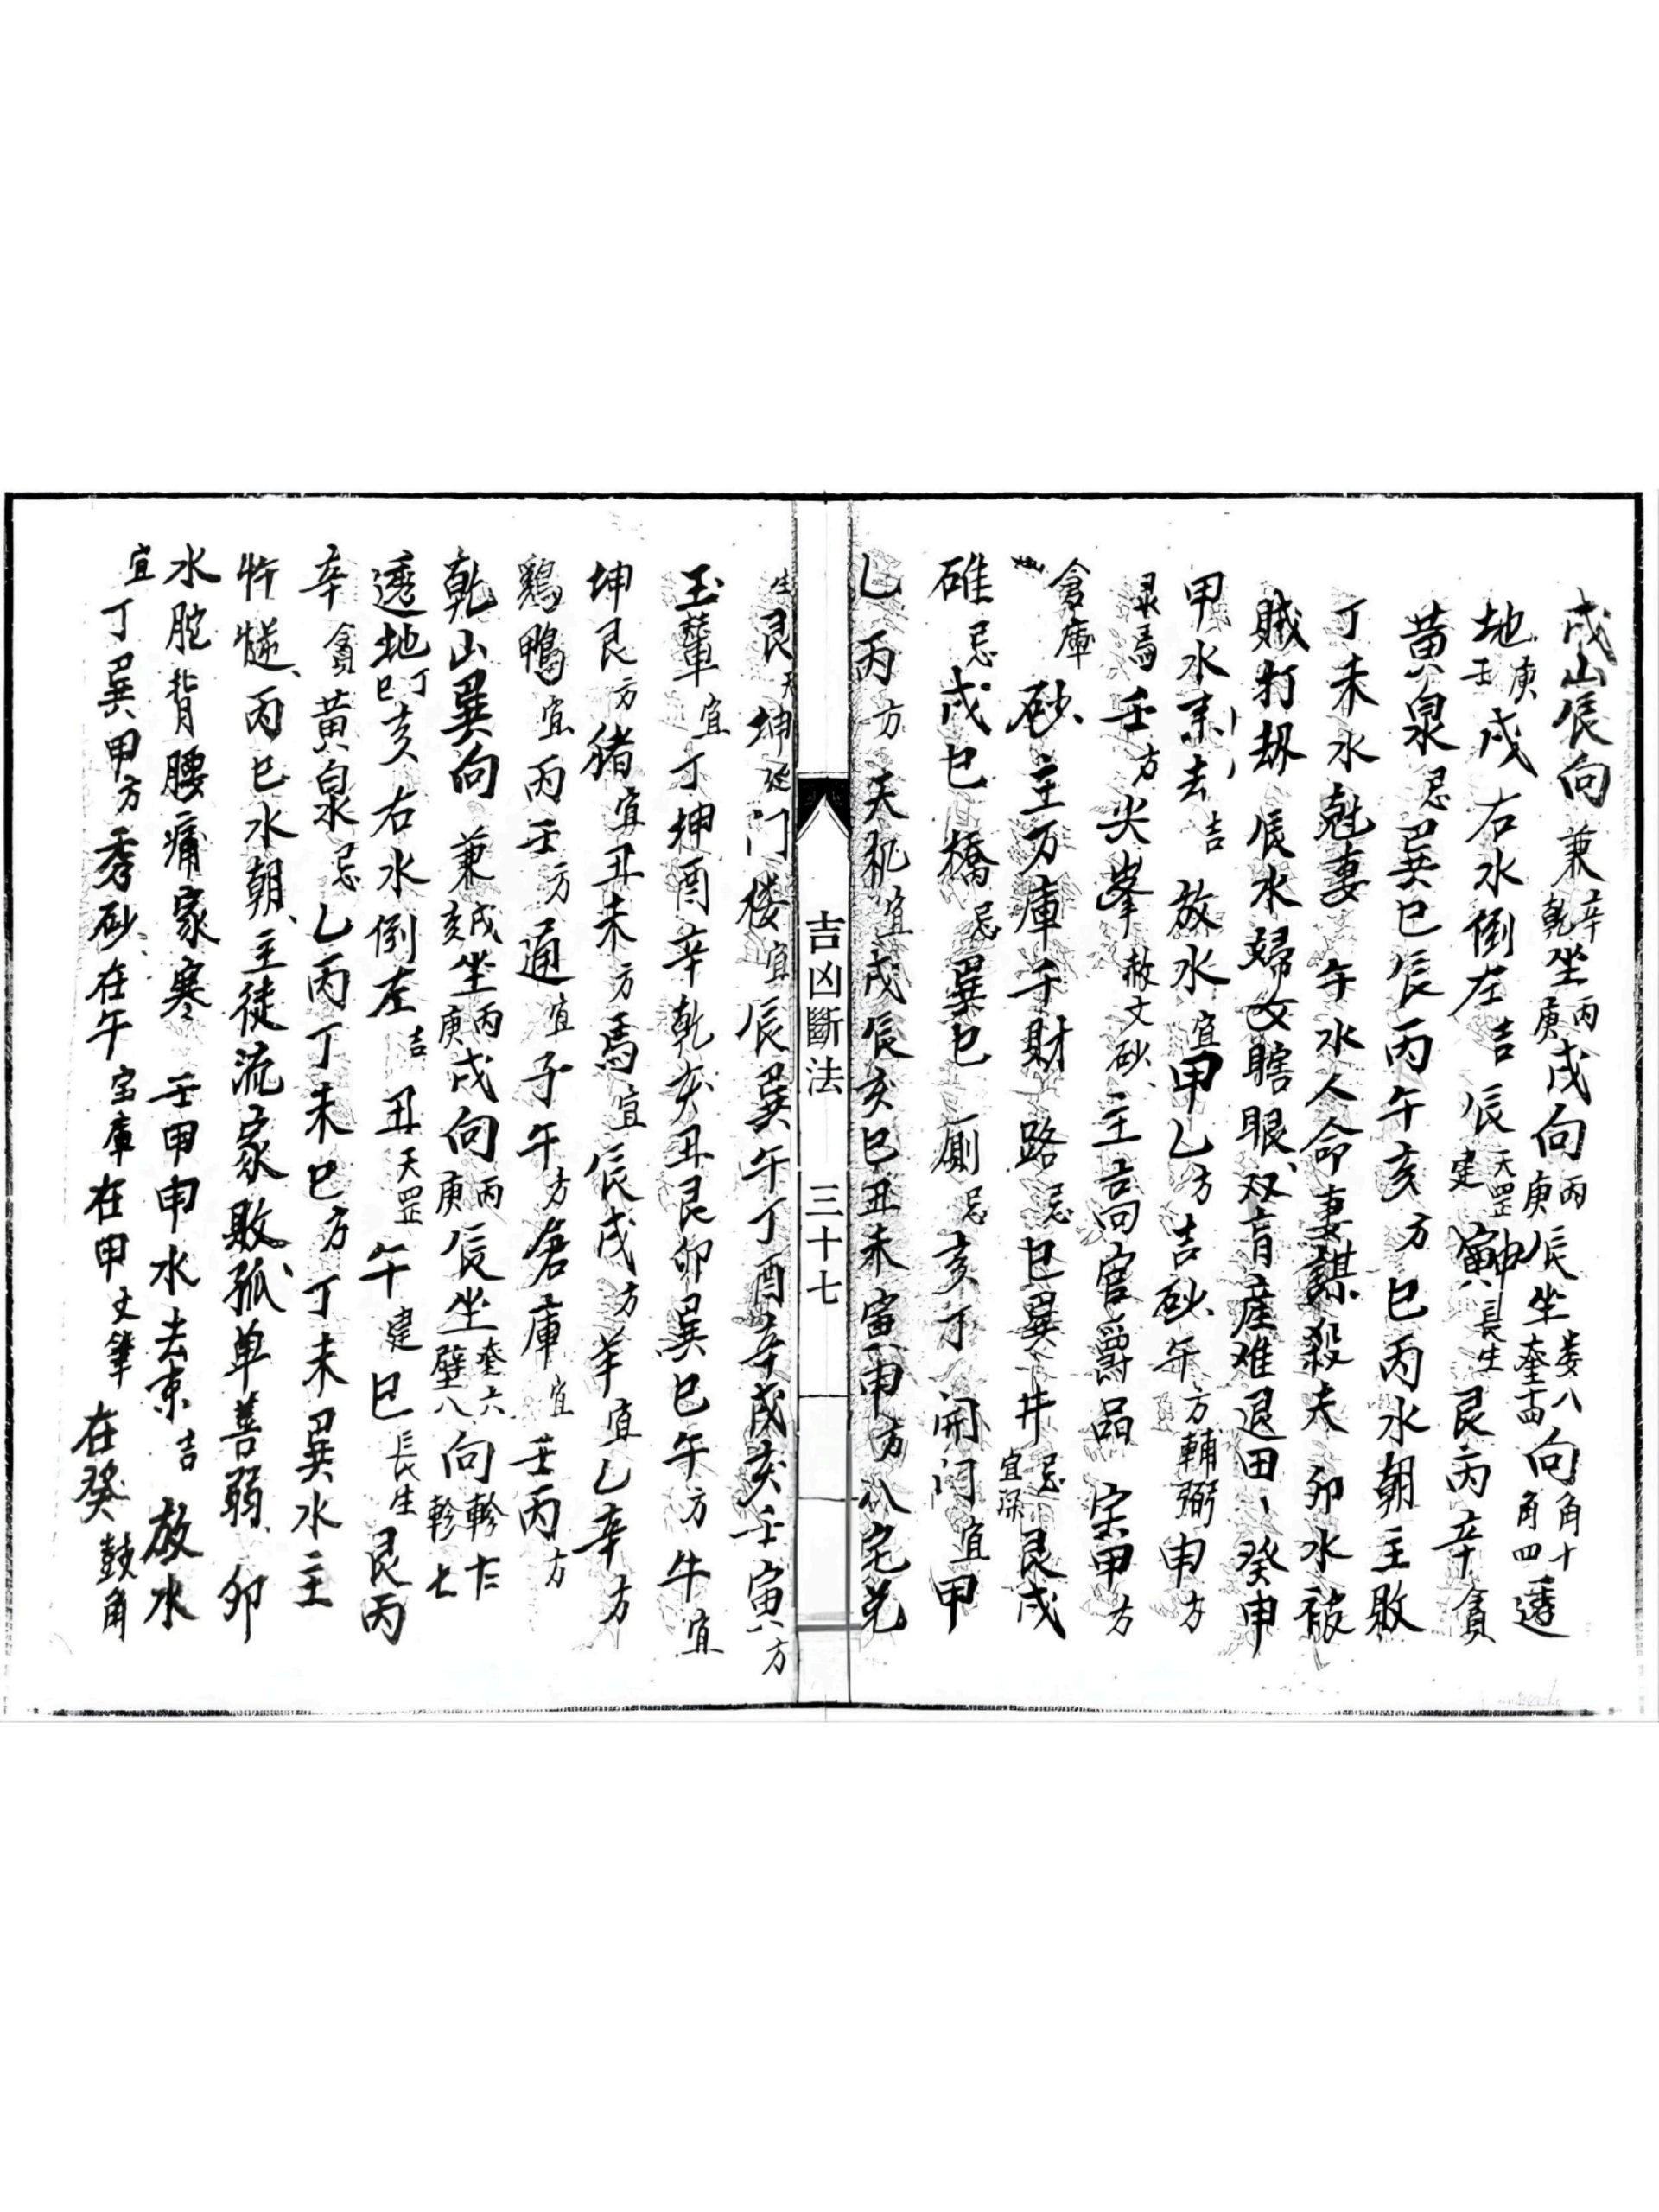 戌山辰向兼辛乾坐丙庚戌向丙庚辰坐娄八奎十四向角十角四透
地庚戌右水倒左吉辰天罡建寅申長生艮丙辛貪
黄泉忌巽巳辰丙午亥方巳丙水朝主敗
丁未水尅妻午水人命妻謀殺夫卯水被
賊打刼辰水婦女瞎眼双盲產难退田癸申
甲水来去吉放水宜甲乙方吉砂午方輔弼申方
馬壬方尖峯赦文砂主高官爵品宗甲方
倉庫砂主万庫千財路忌巳巽井忌宜深艮戌
碓忌戌巳橋忌巽巳厠忌亥方開门宜甲
乙丙方天机宜戌辰亥巳丑未寅申方八宅兑
生艮天坤延门楼宜辰巽午丁酉辛戌亥壬寅方
玉輦宜丁坤酉辛乾亥丑艮卯巽巳午方牛宜
坤艮方猪宜丑未方馬宜辰戌方羊宜乙辛方
鷄鴨宜丙壬方通宜子午方倉庫宜壬丙方
乾山巽向兼戌亥坐丙庚戌向丙庚辰坐奎六壁八向軫軫七
透地丁巳亥右水倒左吉丑天罡午建巳長生艮丙
辛貪黄泉忌乙丙丁未巳方丁未巽水主
忤丙巳水朝主徒流家敗孤单善弱卯
水腔背腰痛家寒壬甲申水去来吉放水
宜丁巽甲方秀砂在午宝庫在甲文筆在癸鼓角
吉凶斷法
三十七